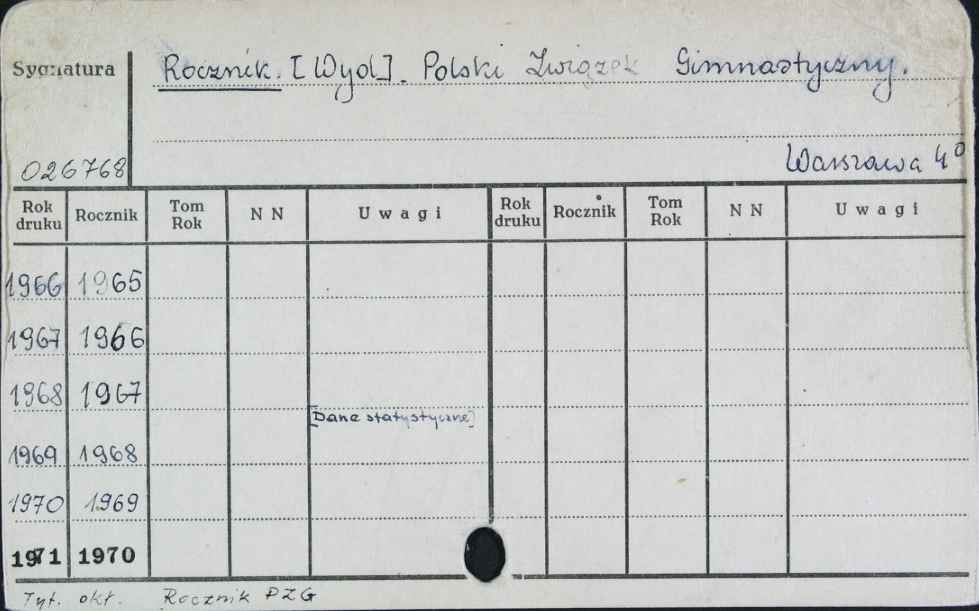 Sygnatura
Rocznik. [Wyd]. Polski Związek Gimnastyczny.
026768
Warszawa 4°
Rok druku Rocznik Tom Rok N N Uwagi Rok druku Rocznik Tom Rok N N Uwagi
1966 1965
1967 1966
1968 1967
[Dane statystyczne]
1969 1968
1970 1969
1971 1970
Tyt. okł. Rocznik PZG